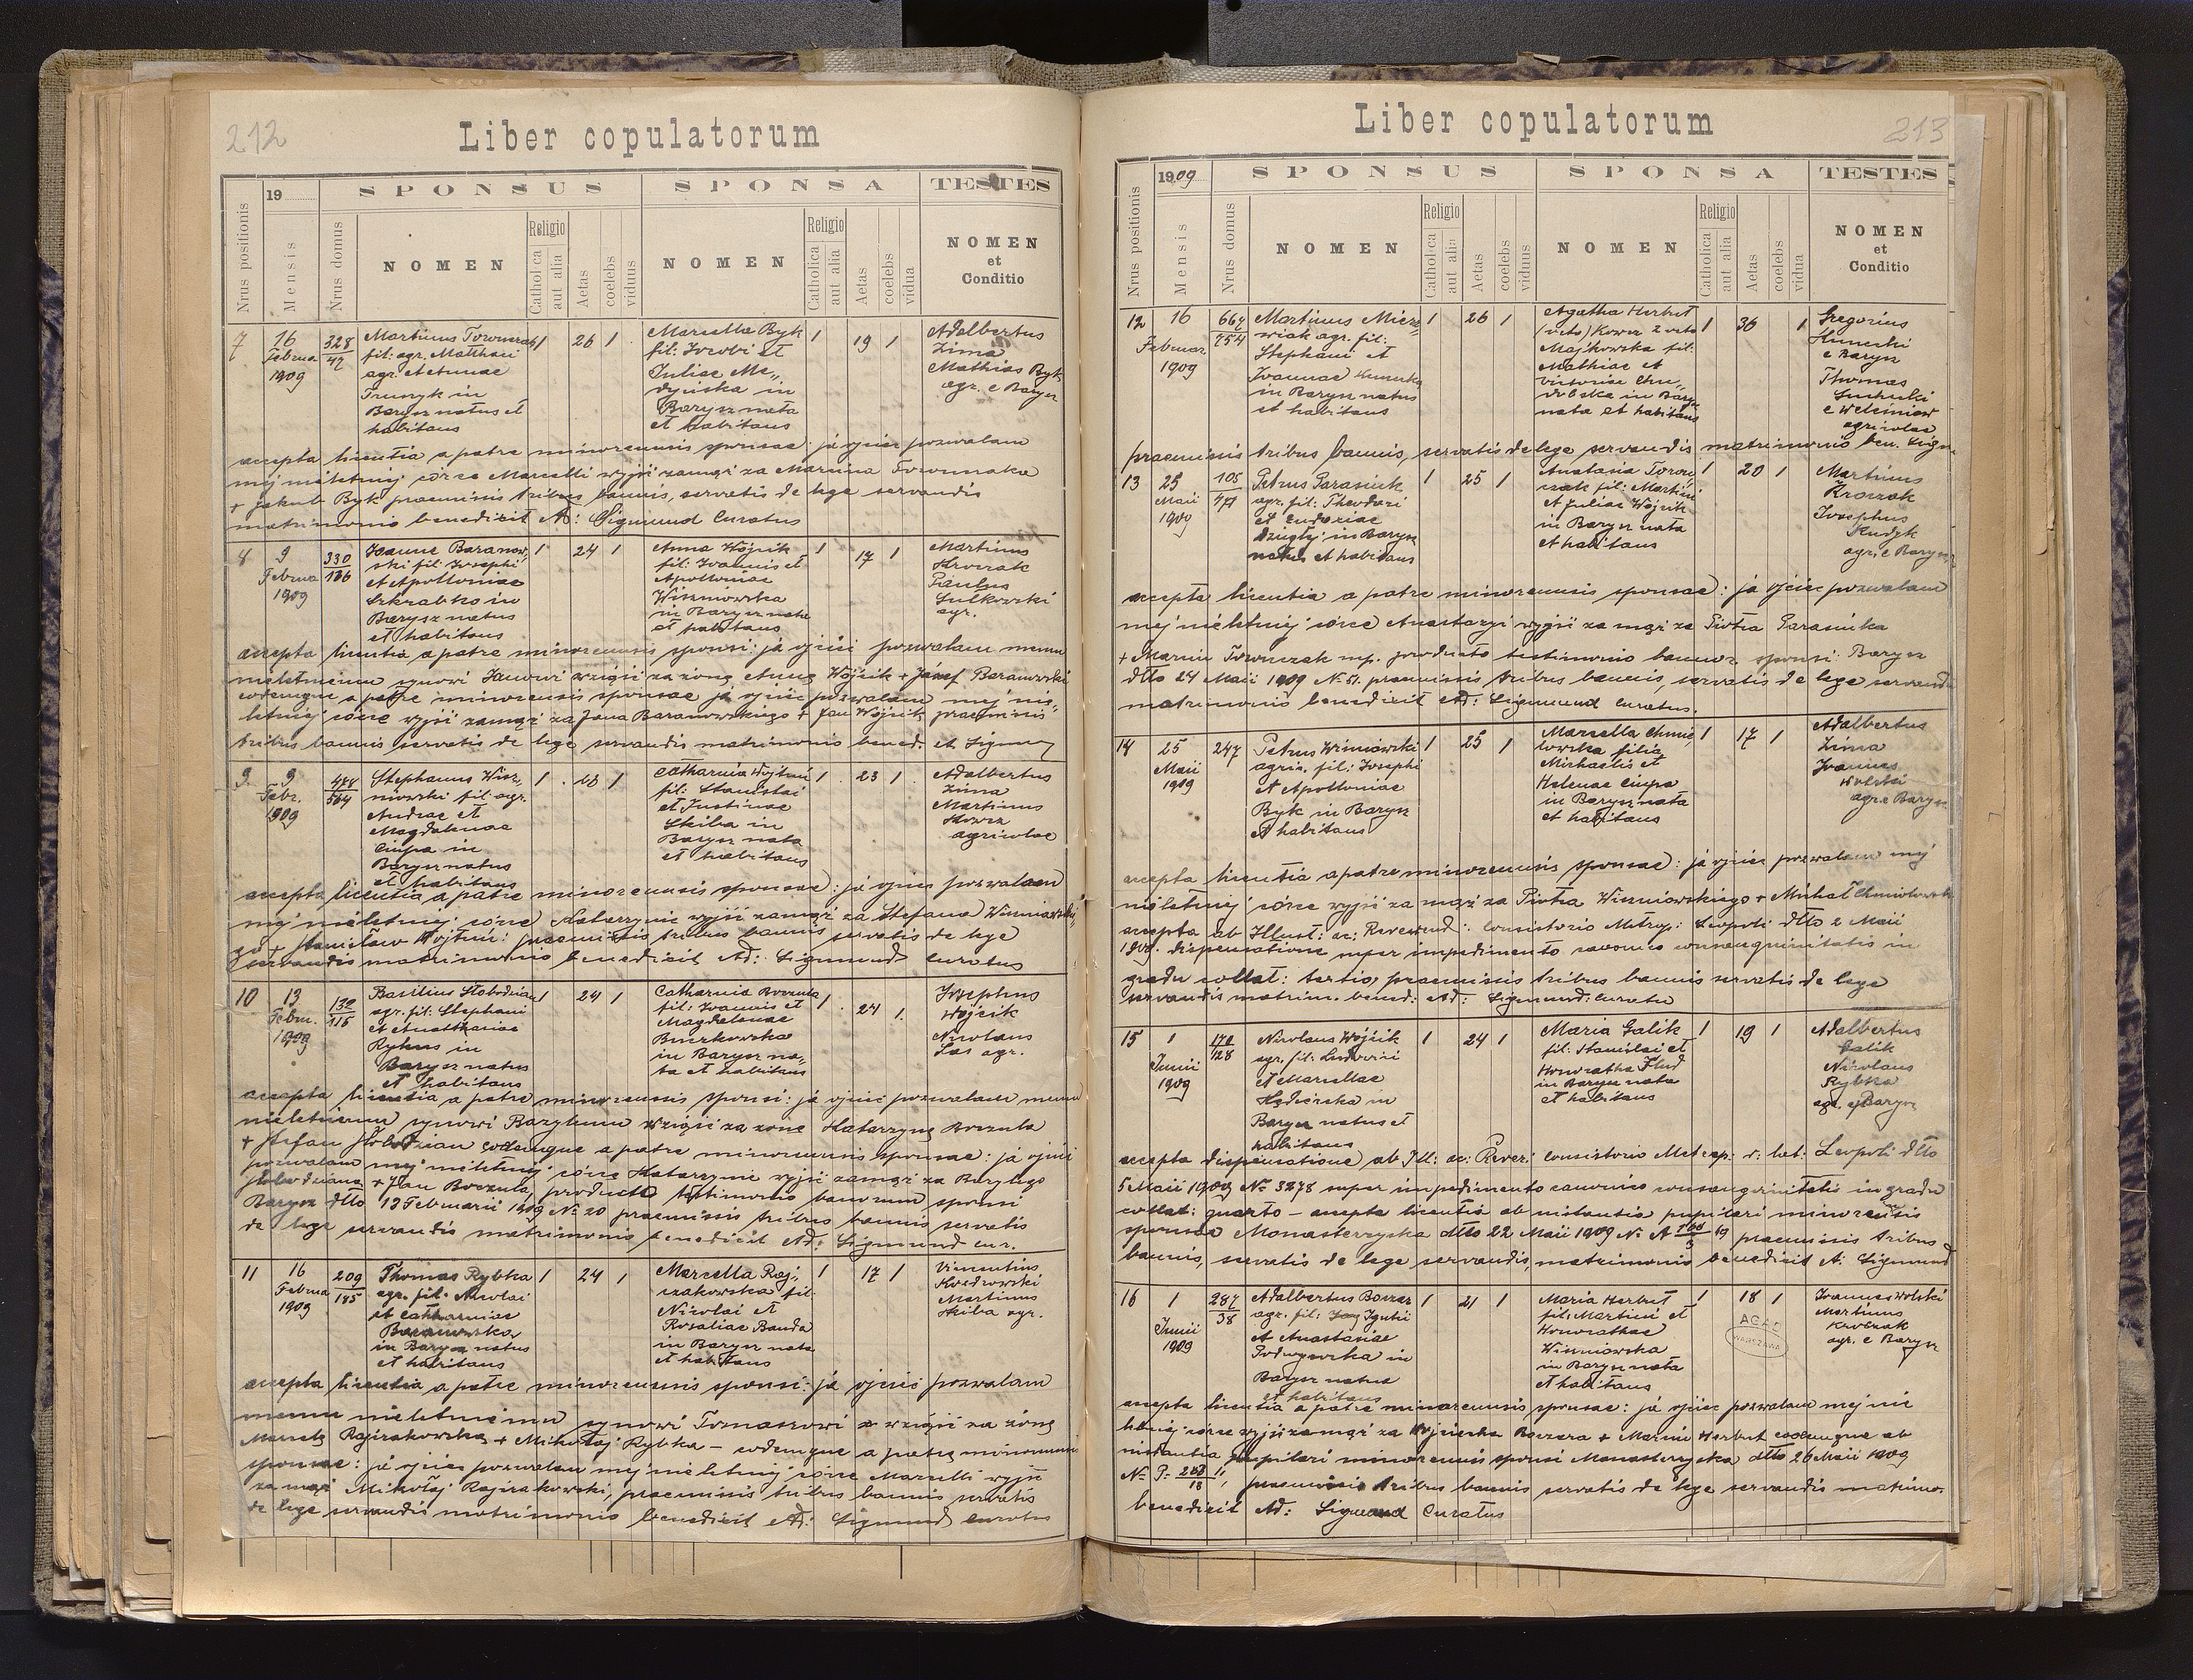 212
Liber copulatorum
19
SPONSUS
SPONSA
TESTES
Nrus positionis
Mensis
Nrus domus
NOMEN
Religio
Catholica
aut alia
Aetas
coelebs
viduus
NOMEN
Religio
Catholica
aut alia
Aetas
coelebs
vidua
NOMEN
et
Conditio
7
16
Februa
1909
328
42
Martinus
fil: agr. Matthaei
agr. et Annae
in
Barysz natus et
habitans
1
26
1
Marcella Byk
fil: Jacobi et
Juliae Me„
dyńska in
Barysz nata
et habitans
1
19
1
Adalbertus
Zima
Mathias Byk
agr. e Barysz
accepta licentia a patre minorennis sponsae: ja ojciec pozwalam
mej niéletniéj córce Marcelli wyjść zamąż za Marcina
+ Jakub Byk praemissis tribus bannis, servatis de lege servandis
matrimonio benedixit Ad: Sigmund Curatus
8
9
Februa
1909
330
186
Joannes Baranow„
ski fil: Josephi
et Apolloniae
Szkrabko in
Barysz natus
et habitans
1
24
1
Anna Wójcik
fil: Joannis et
Apolloniae
Wiszniowska
in Barysz nata
et habitans
1
17
1
Martinus
Kroczak
Paulus
Sulkowski
agr.
accepta licentia a patre minorennis sponsi: ja ojciec pozwalam memu
niéletniemu synowi Janowi wziąść za żonę Annę Wójcik + Józef Baranowski
eodemque a patre minorennis sponsae ja ojciec pozwalam mej nie„
letniéj córce wyjść zamąż za Jana Baranowskiego + Jan Wójcik praemissis
tribus bannis servatis de lege servandis matrimonio bened. et Sigmu
9
9
Febr.
1909
474
564
Stephanus Wisz„
niowski fil: agr.
Andreae et
Magdalenae
Ciupa in
Barysz natus
et habitans
1
1
Catharina
fil: Stanislai
et Justinae
Skiba in
Barysz nata
et habitans
1
23
1
Adalbertus
Zima
Martinus
Kowcz
agricolae
accepta licentia a patre minorennis sponsae: ja ojciec pozwalam
mej niéletniéj córce Katarzynie wyjść zamąż za Stefana Wiszniowskie„
go + Stanisław praemissis tribus bannis servatis de lege
servandis matrimonio benedixit Ad: Sigmund Curatus
10
13
Febru.
1909
132
115
Basilius Słobodzian
agr. fil: Stephani
et Anastasiae
Rykus in
Barysz natus
et habitans
1
24
1
Catharina Boczula
fil: Joannis et
Magdalenae
Buczkowska
in Barysz na„
ta et habitans
1
24
1
Josephus
Wójcik
Nicolaus
Las agr.
accepta licentia a patre minorennis sponsi: ja ojciec pozwalam memu
niéletniemu synowi Bazylemu wziąść za żonę Katarzynę Boczula
+ Stefan Słobodzian eodemque a patre minorennis sponsae: ja ojciec
pozwalam mej niéletniéj córce Katarzynie wyjść zamąż za Bazylego
Słobodziana + Jan Boczula, producto testimonio bannorum sponsi
Barysz dtto 13 Februarii 1909 No 20 praemissis tribus bannis servatis
de lege servandis matrimonio benedixit Ad: Sigmund cur.
11
16
Februa
1909
209
185
Thomas Rybka
agr. fil: Nicolai
et Catharinae
Baranowska
in Barysz natus
et habitans
1
24
1
Marcella Raj„
czakowska fil:
Nicolai et
Rosaliae Banda
in Barysz nata
et habitans
1
17
1
Vincentius
Martinus
Skiba agr.
accepta licentia a patre minorennis sponsi: ja ojciec pozwalam
memu niéletniemu synowi Tomaszowi wziąść za żonę
Marcelę + Mikołaj Rybka – eodemque a patre minorennis
sponsae: ja ojciec pozwalam mej niéletniéj córce Marcelli wyjść
za mąż Mikołaj praemissis tribus bannis servatis
de lege servandis matrimonio benedixit Ad: Sigmund curatus
Liber copulatorum
213
1909
SPONSUS
SPONSA
TESTES
Nrus positionis
Mensis
Nrus domus
NOMEN
Religio
Catholica
aut alia
Aetas
coelebs
viduus
NOMEN
Religio
Catholica
aut alia
Aetas
coelebs
vidua
NOMEN
et
Conditio
12
16
Februar
1909
664
754
Martinus Miecz„
wiak agr. fil:
Stephani et
Joannae
in Barysz natus
et habitans
1
26
1
Agatha Herbet
(voto) Kowcz 2 voto
Majkowska fil:
Mathiae et
Victoriae
in Barysz
nata et habitans
1
36
1
Gregorius
e Barysz
Thomas
e Weleśniów
agricolae
praemissis tribus bannis, servatis de lege servandis matrimonio ben. Sigm
13
25
Maii
1909
105
471
Petrus Parasiuk
agr. fil: Theodori
et Eudoxiae
in Barysz
natus et habitans
1
25
1
Anastasia
fil: Martini
et Juliae Wójcik
in Barysz nata
et habitans
1
20
1
Martinus
Kroczak
Josephus
Rudyk
agr. e Barysz
accepta licentia a patre minorennis sponsae: ja ojciec pozwalam
mej niéletniéj córce Anastazyi wyjść za mąż za Piotra Parasiuka
+ Marcin mp. producto testimonio bannor. sponsi Barysz
dtto 24 Maii 1909 No 51. praemissis tribus bannis, servatis de lege servandis
matrimonio benedixit Ad: Sigmund Curatus.
14
25
Maii
1909
247
Petrus Wiśniowski
agric. fil: Josephi
et Apolloniae
Byk in Barysz
et habitans
1
25
1
Marcella Chmie„
lowska filia
Michaelis et
Helenae Ciupa
in Barysz nata
et habitans
1
17
1
Adalbertus
Zima
Joannes
Wolski
agr. e Barysz
accepta licentia a patre minorennis sponsae: ja ojciec pozwalam mej
niéletniéj córce wyjść za mąż za Piotra Wiszniowskiego + Michał
accepta ab Illust: ac: Reverend: Consistorio Metrop: Leopoli dtto 2 Maii
1909. dispensatione super impedimento canonico consanguinitatis in
gradu collat: tertio, praemissis tribus bannis servatis de lege
servandis matrim. bened: Ad: Sigmund: Curatu
15
1
Junii
1909
172
128
Nicolaus Wójcik
agr. fil: Ludovici
et Marcellae
in
Barysz natus et
habitans
1
24
1
Maria Galik
fil: Stanislai et
Honorathae
in Barysz nata
et habitans
1
19
1
Adalbertus
Galik
Nicolaus
Rybka
agr. e Barysz
accepta dispensatione ab Ill: ac: Reverë Consistorio Metrop: r: lat: Leopoli dtto
5 Maii 1909 No 3278 super impedimento canonico consanguinitatis in gradu
collat: quarto – accepta licentia ab instantia pupilari minorennis
sponsae Monasterzyska dtto 22 Maii 1909 praemissis tribus
bannis, servatis de lege servandis, matrimonio benedixit A: Sigmund
16
1
Junii
1909
287
38
Adalbertus
agr. fil: Ignatii
et Anastasiae
in
Barysz natus
et habitans
1
21
1
Maria Herbet
fil: Martini et
Honorathae
Wiszniowska
in Barysz nata
et habitans
1
18
1
AGAD
WARSZAWA
Joannes Wolski
Martinus
Kroczak
agr. e Barysz
accepta licentia a patre minorennis sponsae: ja ojciec pozwalam mej nie
letniéj córce wyjść zamąż za Wojciecha + Marcin Herbet eodemque ab
instantia pupilari minorennis sponsi Monasterzyska dtto 26 Maii 1909
praemissis tribus bannis servatis de lege servandis matrimo.
benedixit Ad: Sigmund Curatus